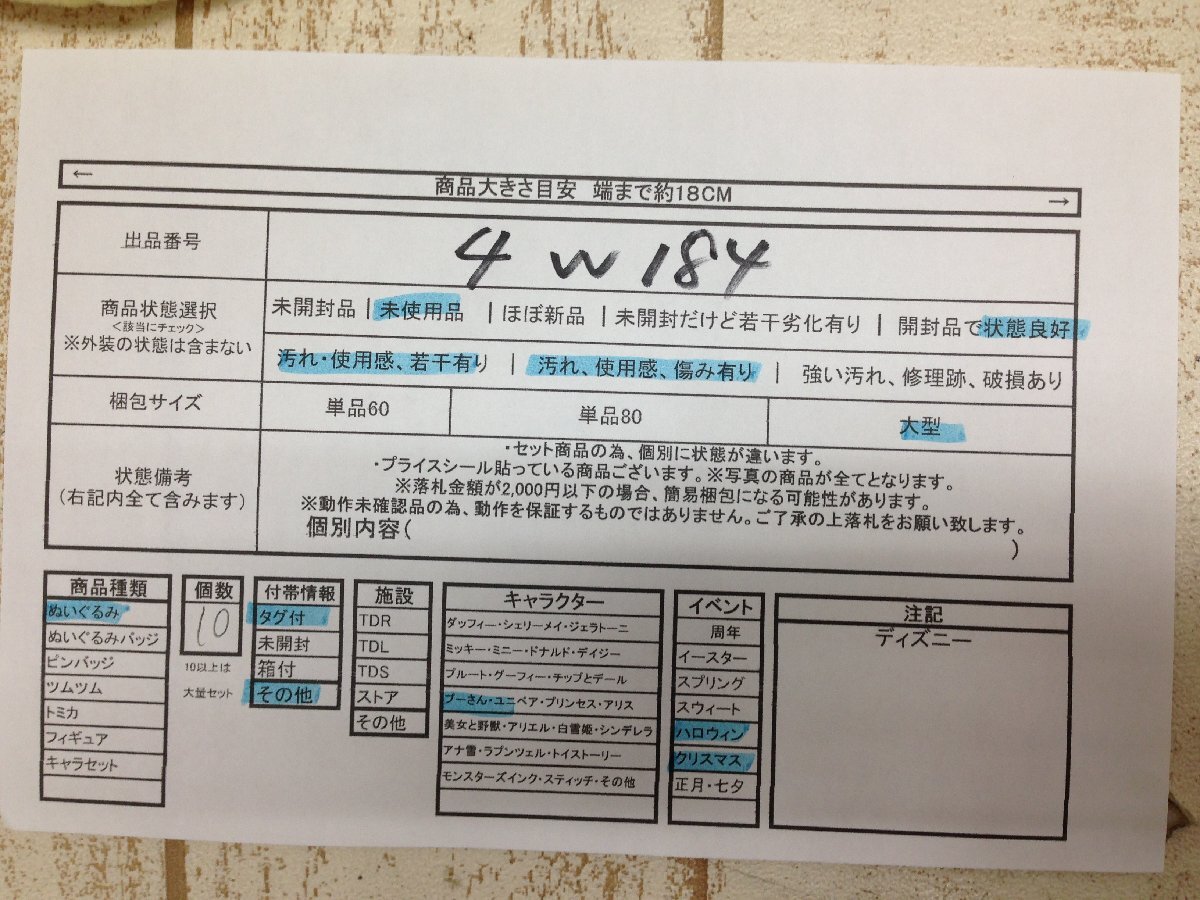 ← 商品大きさ目安 端まで約18CM →
出品番号 4 W 184
商品状態選択
<該当にチェック>
※外装の状態は含まない
未開封品 | 未使用品 | ほぼ新品 | 未開封だけど若干劣化有り | 開封品で状態良好
汚れ・使用感、若干有り | 汚れ、使用感、傷み有り | 強い汚れ、修理跡、破損あり
梱包サイズ 単品60 単品80 大型
状態備考
(右記内全て含みます)
・セット商品の為、個別に状態が違います。
・プライスシール貼っている商品ございます。※写真の商品が全てとなります。
※落札金額が2,000円以下の場合、簡易梱包になる可能性があります。
※動作未確認品の為、動作を保証するものではありません。ご了承の上落札をお願い致します。
個別内容( )
商品種類
ぬいぐるみ
ぬいぐるみバッジ
ピンバッジ
ツムツム
トミカ
フィギュア
キャラセット
個数
10
10以上は
大量セット
付帯情報
タグ付
未開封
箱付
その他
施設
TDR
TDL
TDS
ストア
その他
キャラクター
ダッフィー・シェリーメイ・ジェラトーニ
ミッキー・ミニー・ドナルド・デイジー
プルート・グーフィー・チップとデール
プーさん・ユニベア・プリンセス・アリス
美女と野獣・アリエル・白雪姫・シンデレラ
アナ雪・ラプンツェル・トイストーリー
モンスターズインク・スティッチ・その他
イベント
周年
イースター
スプリング
スウィート
ハロウィン
クリスマス
正月・七夕
注記
ディズニー